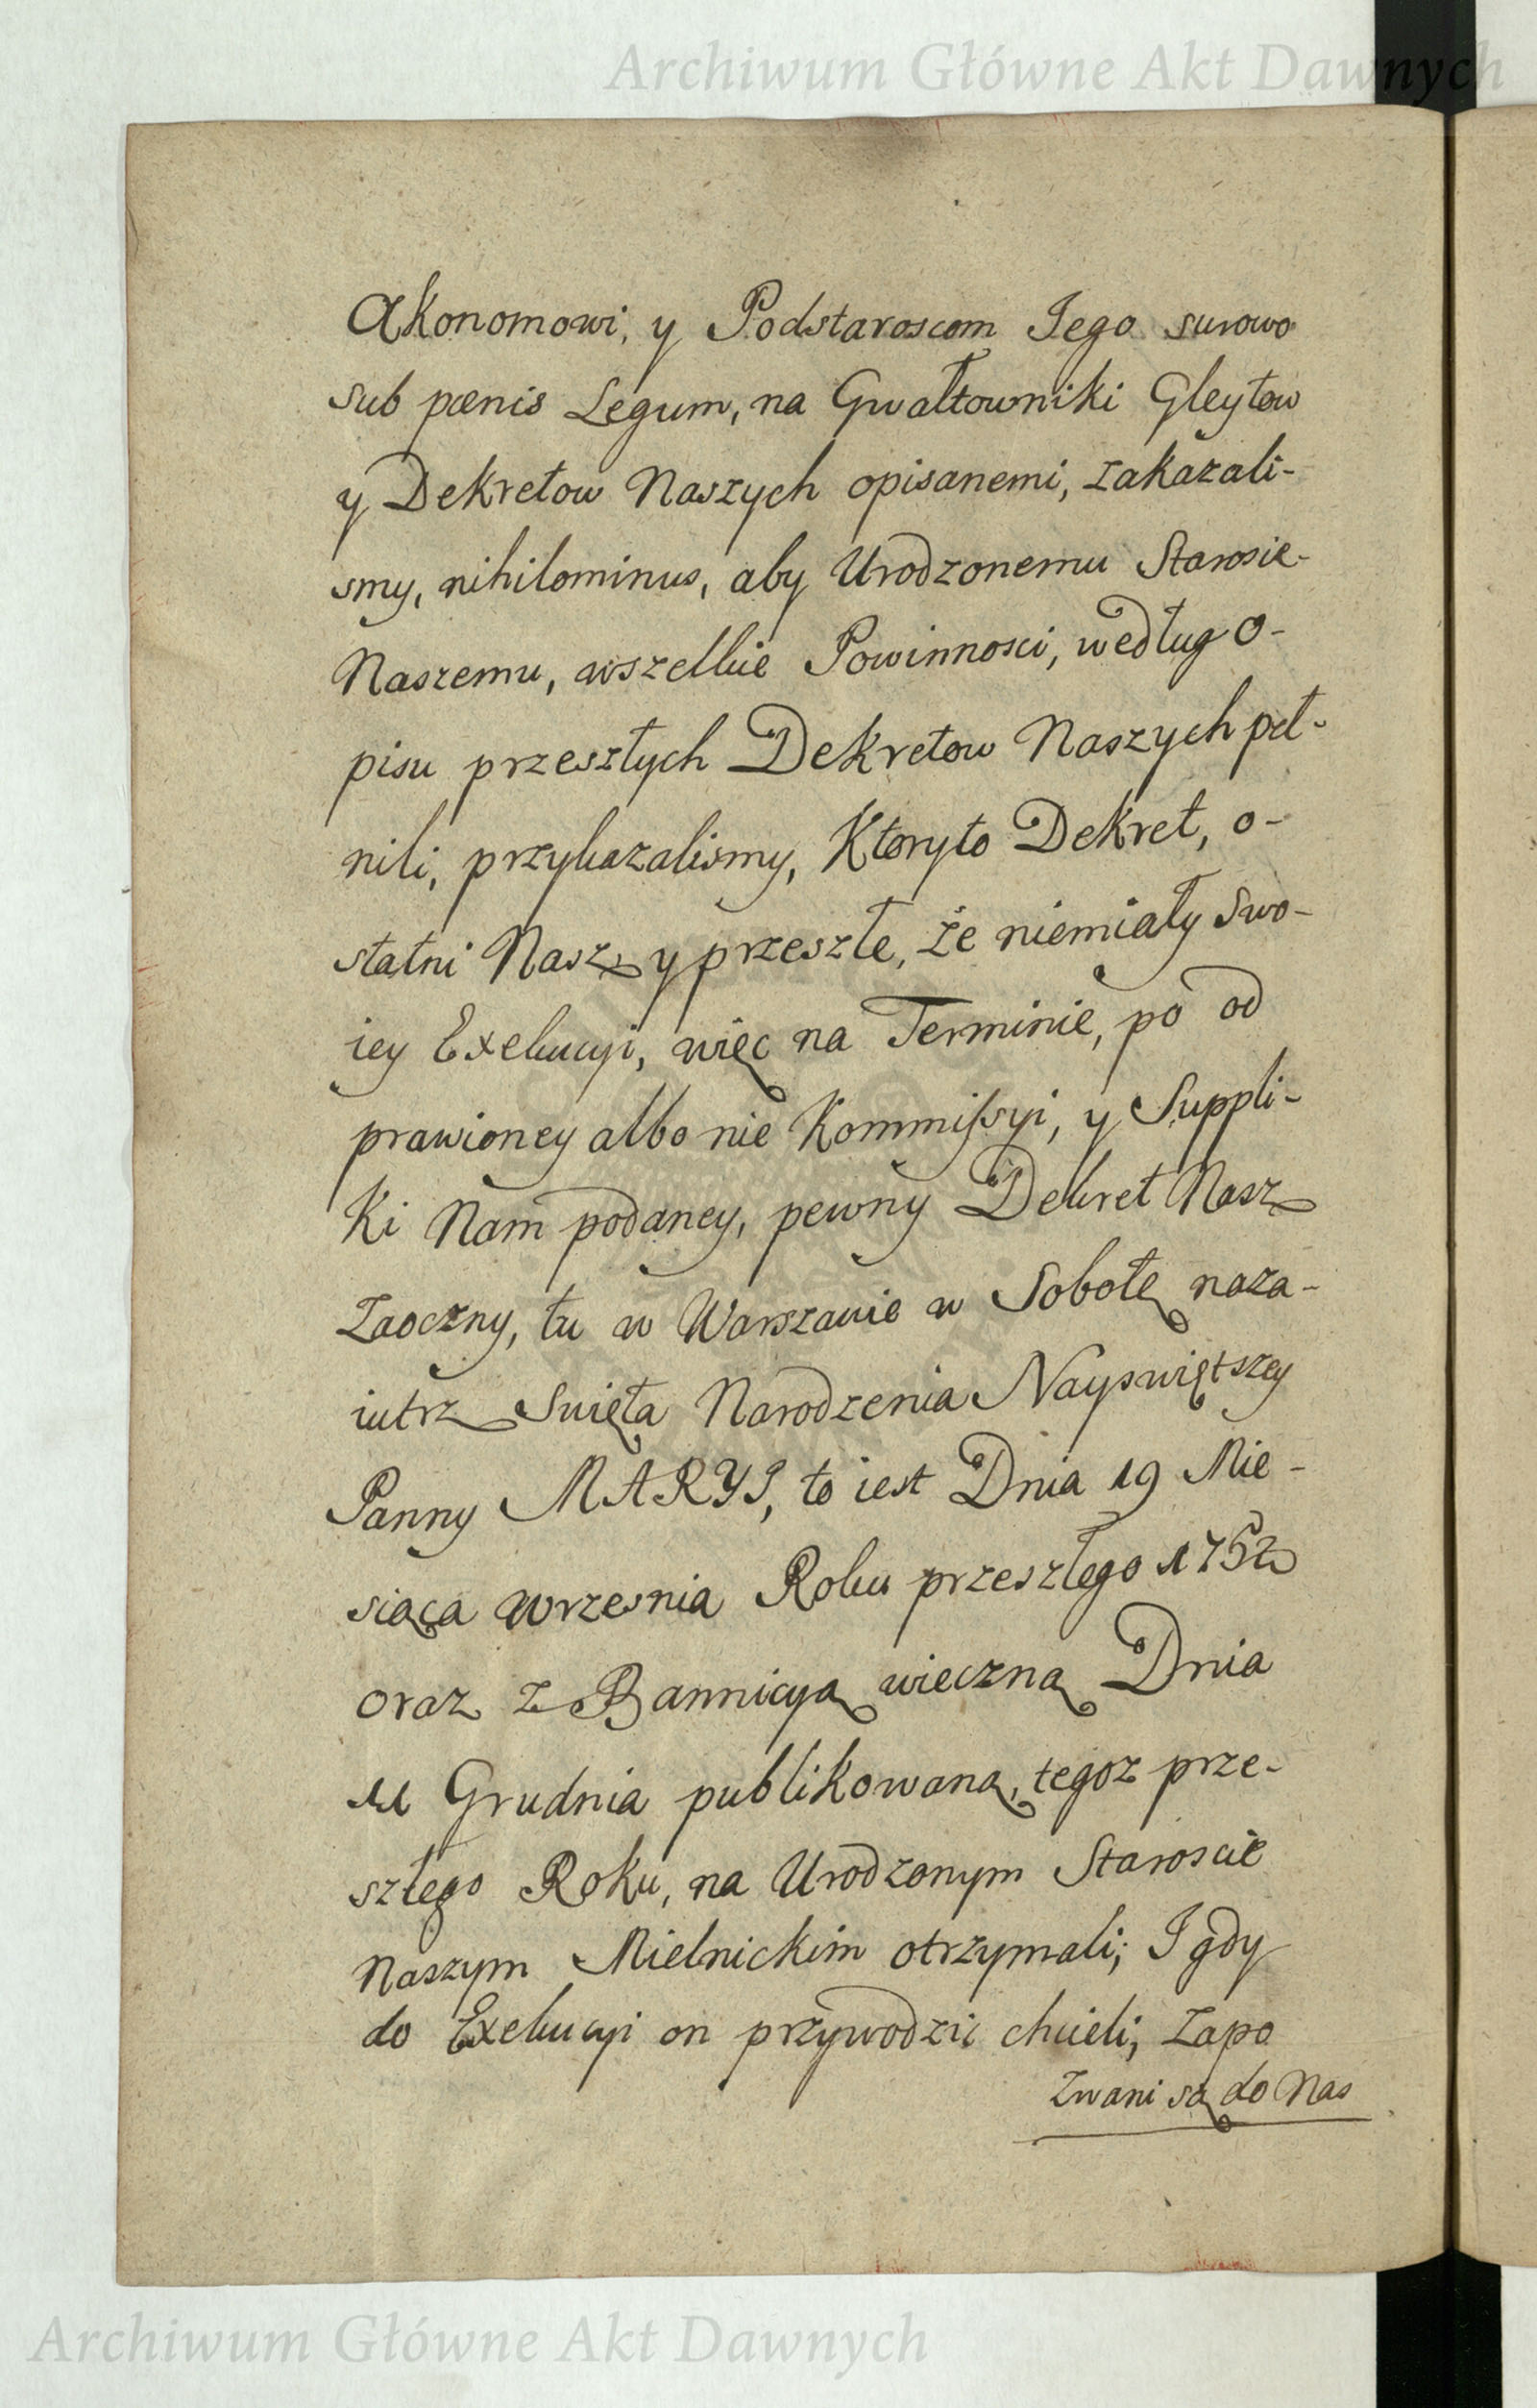 Archiwum Główne Akt Dawnych
Akonomowi, y Podstaroscom Jego surowo
sub pœnis Legum, na Gwałtowniki Gleytow
y Dekretow Naszych opisanemi, zakazali-
smy, nihilominus, aby Urodzonemu Starosie-
Naszemu, wszelkie Powinnosci, według o-
pisu przeszłych Dekretow Naszych peł-
nili, przykazalismy, Ktoryto Dekret, o-
statni Nasz y przeszłe, że niemiały swo-
iey Exekucyi, więc na Terminie, po od
prawioney albo nie Kommissyi, y Suppli-
ki Nam podaney, pewny Dekret Nasz
Zaoczny, tu w Warszawie w Sobotę naza-
iutrz Swięta Narodzenia Nayswiętszey
Panny MARYI, to iest Dnia 19 Mie-
siąca Wrzesnia Roku przeszłego 1752
oraz z Bannicyą wieczną Dnia
11 Grudnia publikowaną, tegoz prze-
szłego Roku, na Urodzonym Staroscie
Naszym Mielnickim otrzymali; I gdy
do Exekucyi on przywodzic chcieli, Zapo
zwani są do Nas
Archiwum Główne Akt Dawnych